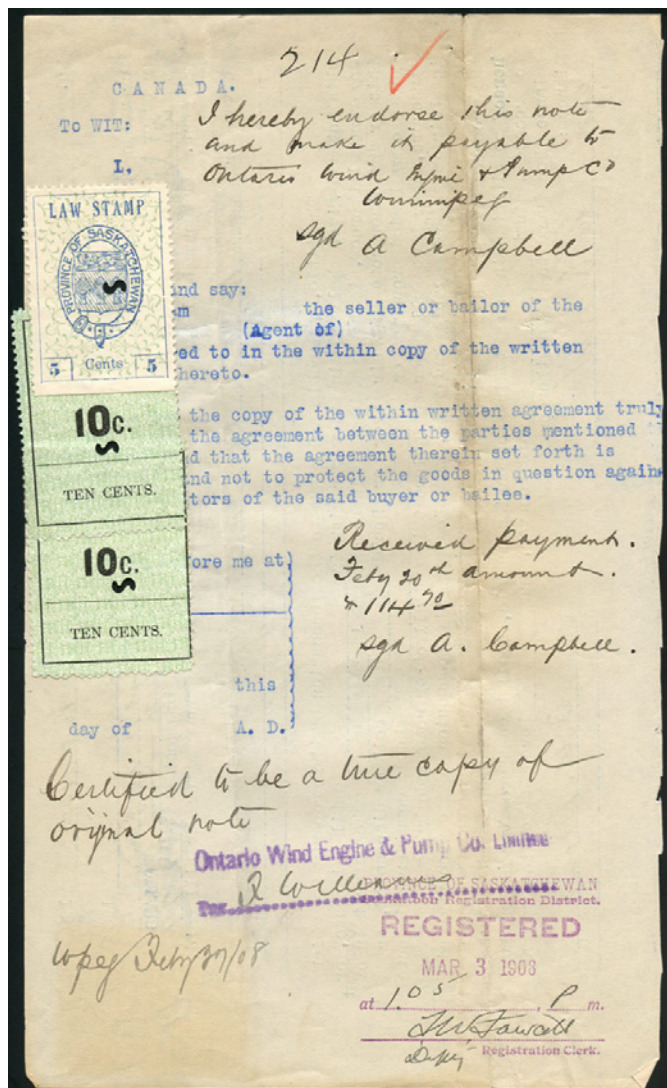 214
CANADA.
To WIT:
I hereby endorse this note
and make it payable to
I,
Ontario Wind Engine & Pump Co
Winnipeg
sgd A Campbell
LAW STAMP
PROVINCE OF SASKATCHEWAN
5 Cents 5
and say:
the seller or bailor of the
(Agent of)
ed to in the within copy of the written
hereto.
10c.
TEN CENTS.
the copy of the within written agreement truly
the agreement between the parties mentioned
d that the agreement therein set forth is
and not to protect the goods in question agains
tors of the said buyer or bailee.
10c.
TEN CENTS.
fore me at
Received payment.
Feby 20th amount.
$114.70
sgd A. Campbell.
this
day of A. D.
Certified to be a true copy of
original note
Ontario Wind Engine & Pump Co. Limited
Per
PROVINCE OF SASKATCHEWAN
Registration District.
REGISTERED
wpeg Feby 27/08
MAR 3 1908
at 1.05 P m.
Depy Registration Clerk.